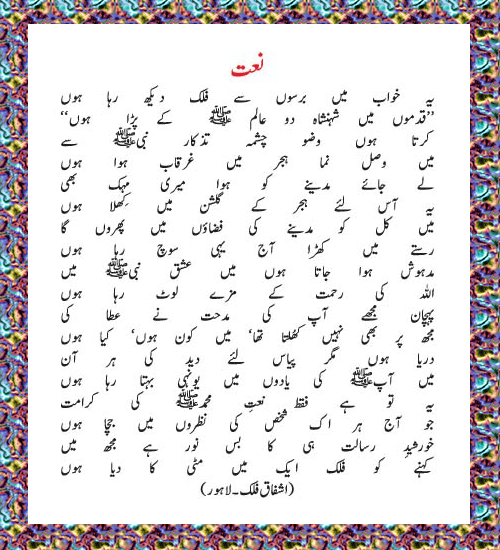 نعت
یہ خواب میں برسوں سے فلک دیکھ رہا ہوں
”قدموں میں شہنشاہِ دو عالم ﷺ کے پڑا ہوں“
کرتا ہوں وضو چشمہ تذکارِ نبیﷺ سے
میں وصل نما ہجر میں غرقاب ہوا ہوں
لے جائے مدینے کو ہوا میری مہک بھی
یہ آس لئے ہجر کے گلشن میں کِھلا ہوں
میں کل کو مدینے کی فضاؤں میں پھروں گا
رستے میں کھڑا آج یہی سوچ رہا ہوں
مدہوش ہوا جاتا ہوں میں عشق نبیﷺ میں
اللہ کی رحمت کے مزے لوٹ رہا ہوں
پہچان مجھے آپ کی مدحت نے عطا کی
مجھ پر بھی نہیں کھلتا تھا‘ میں کون ہوں‘ کیا ہوں
دریا ہوں مگر پیاس لئے دید کی ہر آن
میں آپﷺ کی یادوں میں یونہی بہتا رہا ہوں
یہ تو ہے فقط نعتِ محمدﷺ کی کرامت
جو آج ہر اک شخص کی نظروں میں جچا ہوں
خورشیدِ رسالت ہی کا بس نور ہے مجھ میں
کہنے کو فلک ایک میں مٹی کا دیا ہوں
(اشفاق فلک۔لاہور)